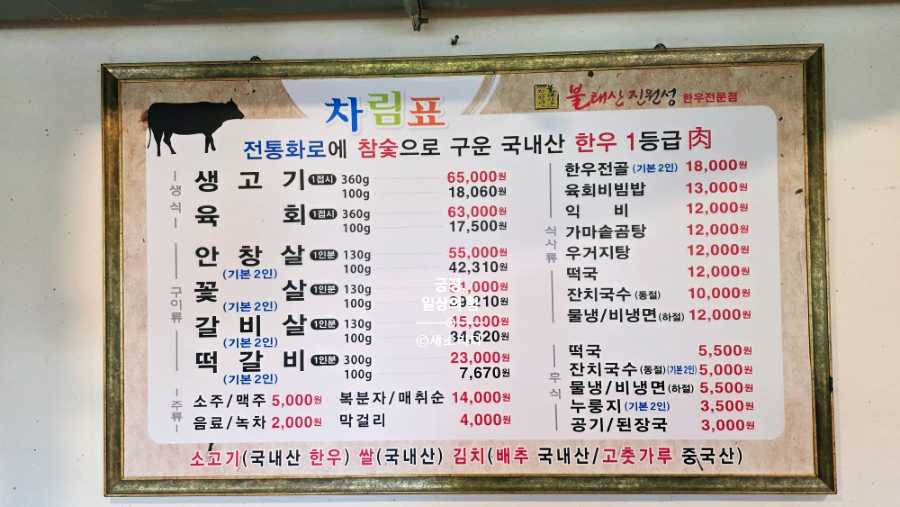 차림표
불태산진원성 한우전문점
전통화로에 참숯으로 구운 국내산 한우 1등급 肉
생식
생고기 1접시 360g 65,000원
100g 18,060원
육회 1접시 360g 63,000원
100g 17,500원
구이류
안창살 1인분 130g 55,000원
(기본 2인) 100g 42,310원
꽃살 1인분 130g
(기본 2인) 100g
갈비살 1인분 130g 45,000원
(기본 2인) 100g 34,620원
떡갈비 1인분 300g 23,000원
(기본 2인) 100g 7,670원
주류
소주/맥주 5,000원 복분자/매취순 14,000원
음료/녹차 2,000원 막걸리 4,000원
식사류
한우전골 (기본 2인) 18,000원
육회비빔밥 13,000원
익비 12,000원
가마솥곰탕 12,000원
우거지탕 12,000원
떡국 12,000원
잔치국수 (동절) 10,000원
물냉/비냉면 (하절) 12,000원
후식
떡국 5,500원
잔치국수 (동절) (기본 2인) 5,000원
물냉/비냉면 (하절) 5,500원
누룽지 (기본 2인) 3,500원
공기/된장국 3,000원
소고기(국내산 한우) 쌀(국내산) 김치(배추 국내산/고춧가루 중국산)